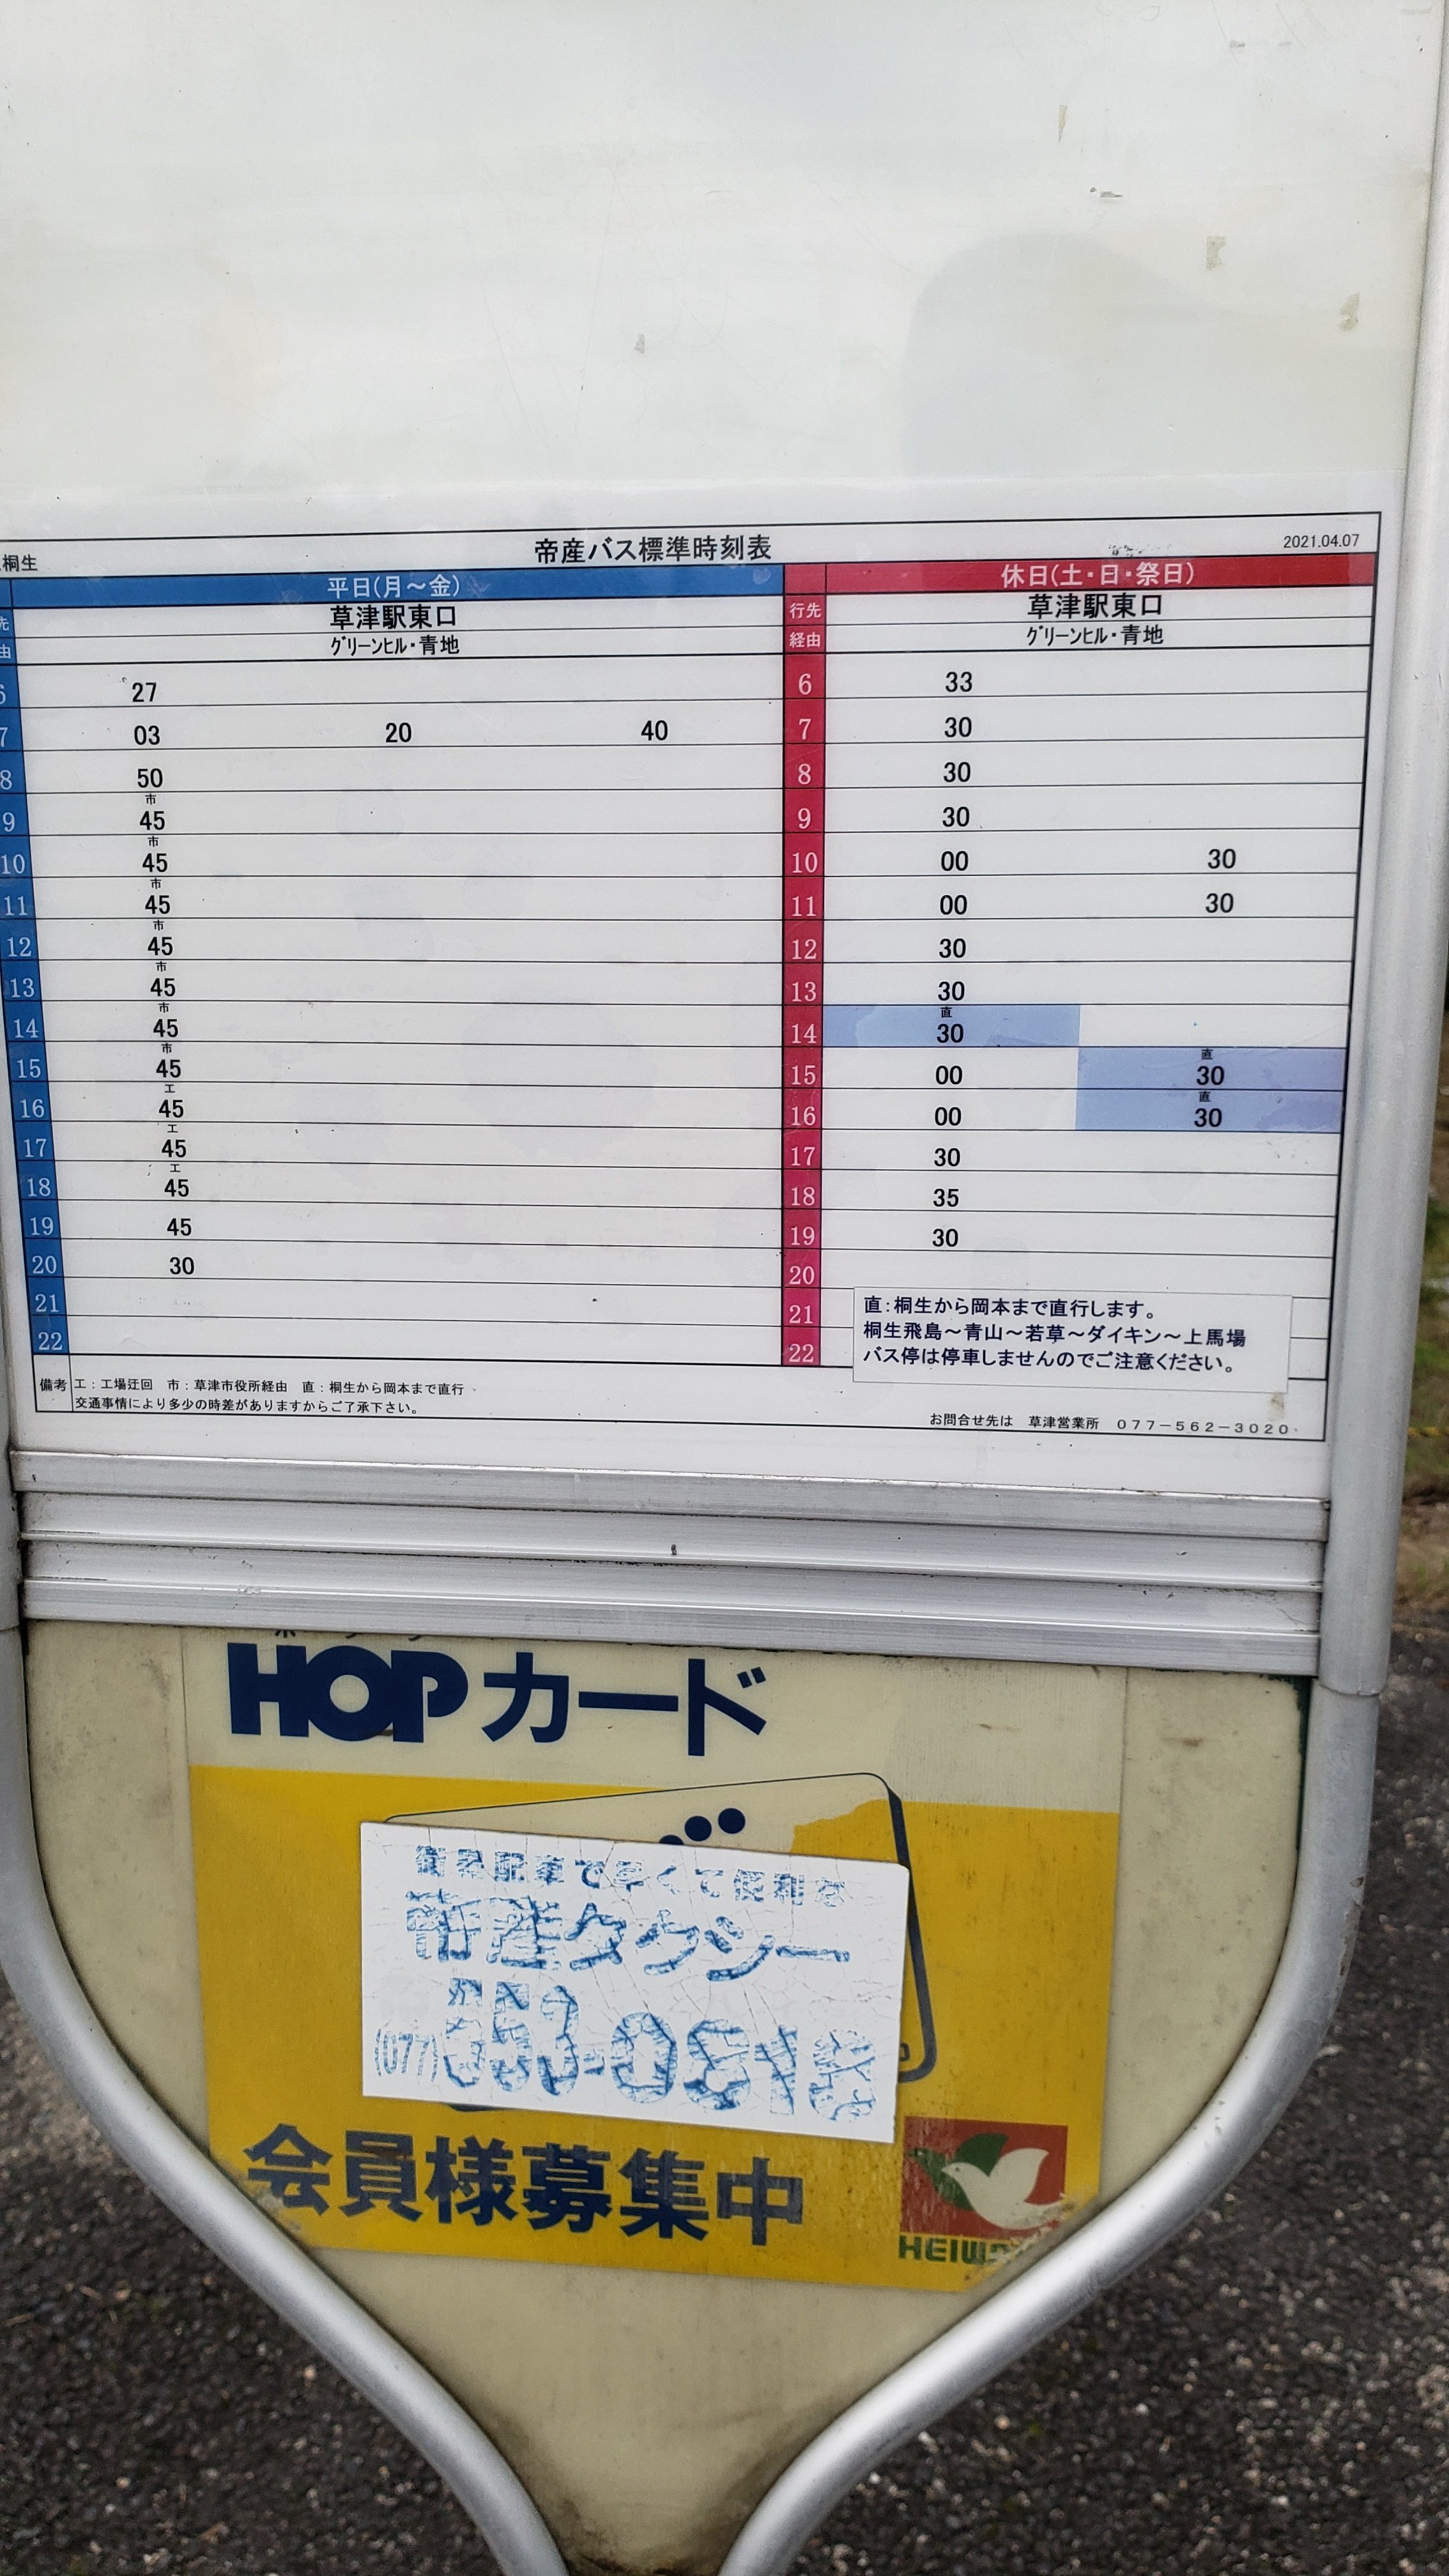 桐生
帝産バス標準時刻表
2021.04.07
平日(月～金)
休日(土・日・祭日)
草津駅東口
行先
草津駅東口
グリーンヒル・青地
経由
グリーンヒル・青地
6 27
6 33
7 03 20 40
7 30
8 50
8 30
市
9 45
9 30
市
10 45
10 00 30
市
11 45
11 00 30
市
12 45
12 30
市
13 45
13 30
市 直
14 45
14 30
市 直
15 45
15 00 30
工 直
16 45
16 00 30
工
17 45
17 30
工
18 45
18 35
19 45
19 30
20 30
20
21
21
22
22
直：桐生から岡本まで直行します。
桐生飛島～青山～若草～ダイキン～上馬場
バス停は停車しませんのでご注意ください。
備考 工：工場迂回 市：草津市役所経由 直：桐生から岡本まで直行
交通事情により多少の時差がありますからご了承下さい。
お問合せ先は 草津営業所 077-562-3020
HOPカード
帝産タクシー
(077)
会員様募集中